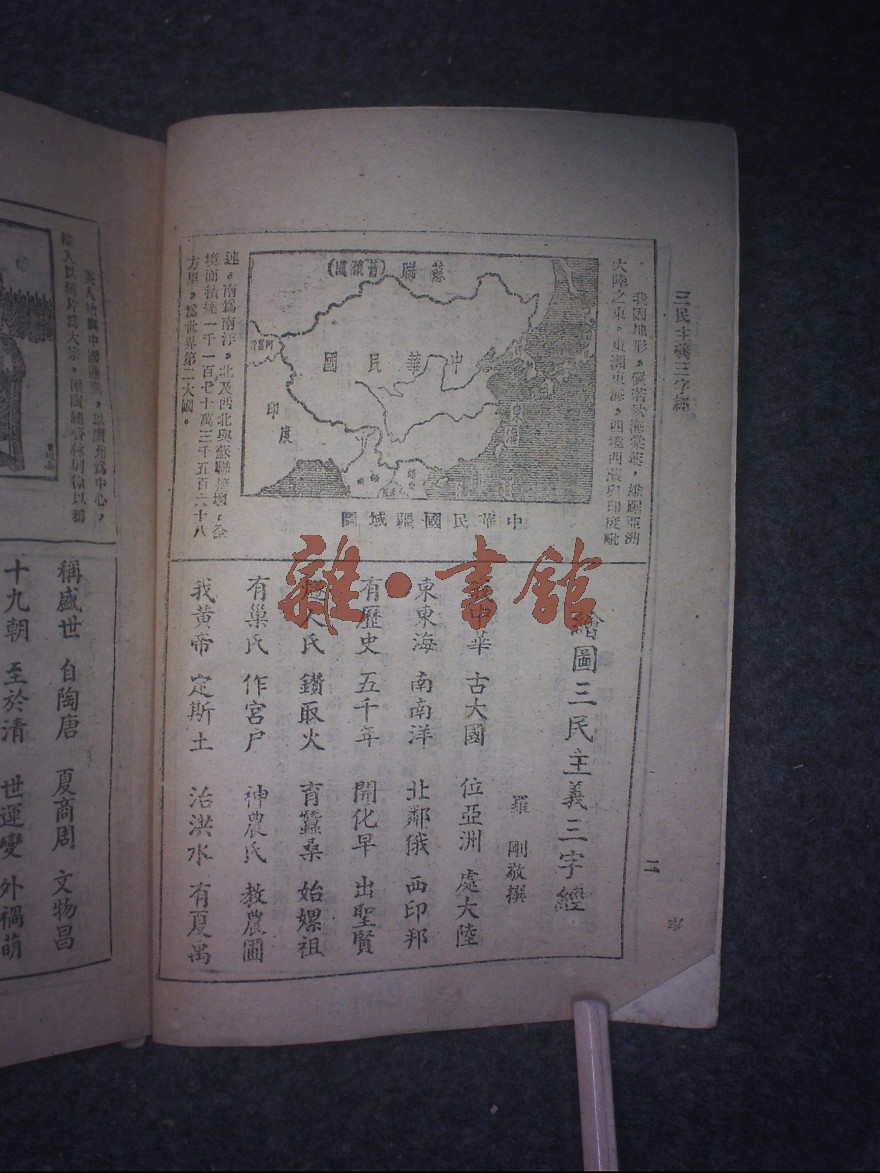 三民主義三字經
二
我國地形，儼若秋海棠葉，雄踞亞洲
大陸之東。東瀕東海，西達西藏與印度毗
連。南為南洋，北及西北與蘇聯接壤，全
境面積達一千一百七十萬三千五百六十八
方里，為世界第二大國。
蘇聯(舊俄國)
中華民國
印度
中華民國疆域圖
繪圖三民主義三字經
羅剛敬撰
中華 古大國 位亞洲 處大陸
東東海 南南洋 北鄰俄 西印邦
有歷史 五千年 開化早 出聖賢
人氏 鑽取火 育蠶桑 始嫘祖
有巢氏 作宮戶 神農氏 教農圃
我黃帝 定斯土 治洪水 有夏禹
雜·書館
英人始與中國通商，以廣州為中心，
輸入以鴉片為大宗。
稱盛世 自陶唐 夏商周 文物昌
十九朝 至於清 世運變 外禍萌